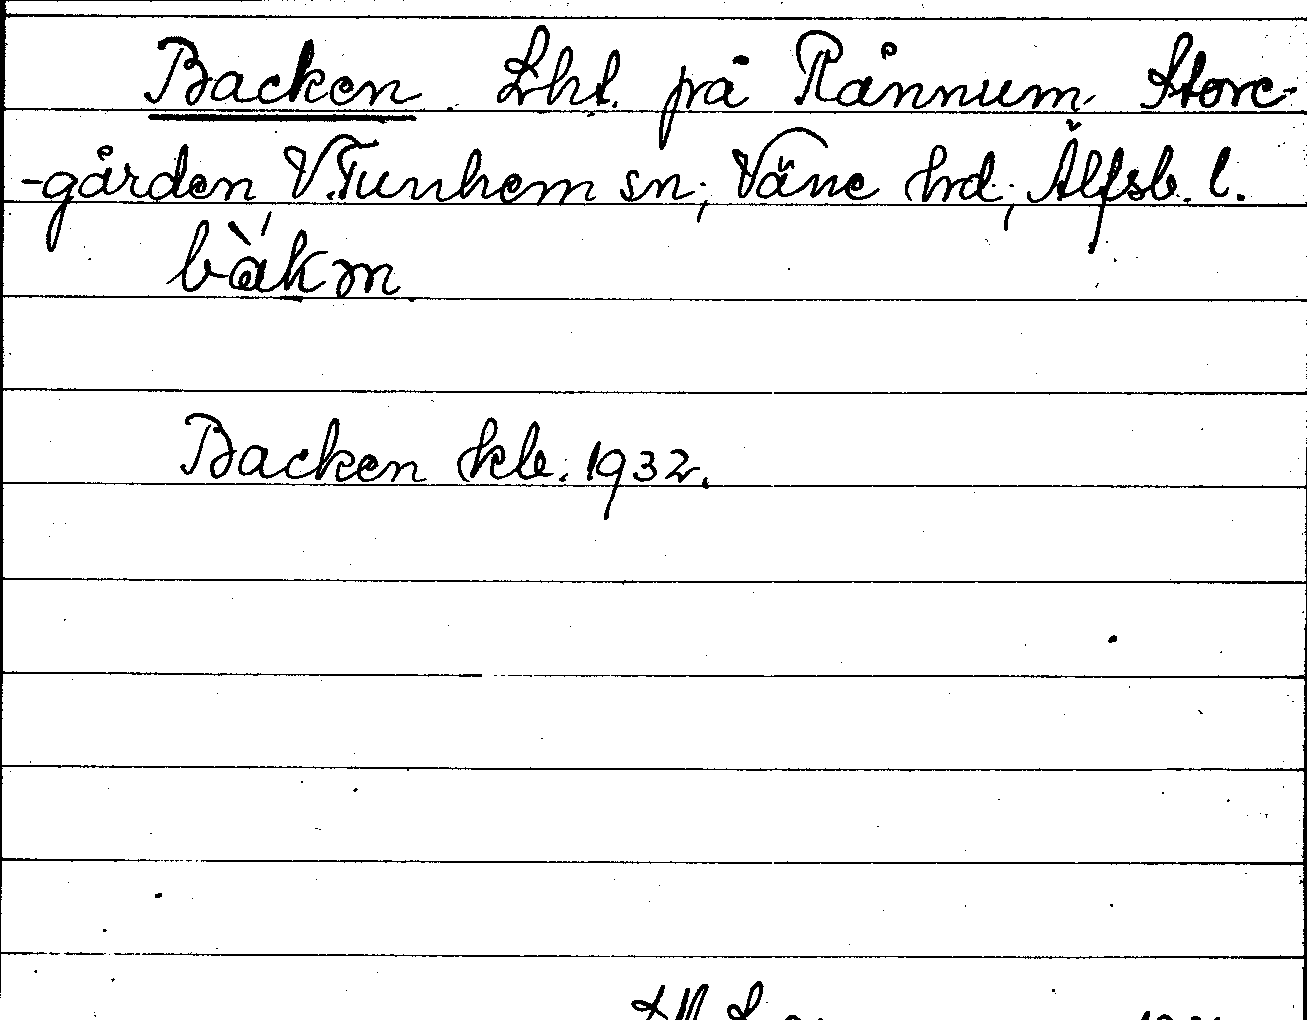 Backen. Lht. på Rånnum Store-
-gården, V.Tunhem sn, Väne hd, Älfsb. l.
bàkm.
Backen kb. 1932.